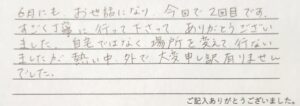 6月にも、お世話になり 今回で2回目です。
すごく丁寧に行って下さって ありがとうござい
ました。自宅ではなく場所を変えて行ない
ましたが 熱い中、外で 大変申し訳有りません
でした。
ご記入ありがとうございました。